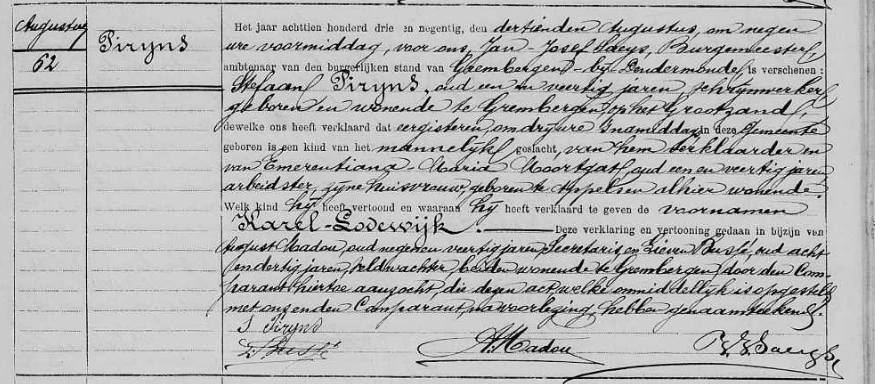 Augustus
62
Piryns
Het jaar achttien honderd drie en negentig, den dertienden Augustus, om negen
ure voormiddag, voor ons, Jan-Josef Saeys, Burgemeester
ambtenaar van den burgerlijken stand van Grembergen-by Dendermonde, is verschenen:
Stefaan Piryns, oud een en veertig jaren, schrynwerker
geboren en wonende te Grembergen, op het Grootzand,
dewelke ons heeft verklaard dat eergisteren, om dry ure namiddag, in deze Gemeente
geboren is een kind van het mannelyk geslacht, van hem verklaarder en
van Emerentiana-Maria Moortgat, oud een en veertig jaren
arbeidster, zyne huisvrouw, geboren te Appelsen alhier wonende
Welk kind hy heeft vertoond en waaraan hy heeft verklaard te geven de voornamen
Karel-Lodewijk. Deze verklaring en vertooning gedaan in bijzijn van
August Madou, oud negen en veertig jaren, Secretaris, en Lieven Busté, oud acht
en dertig jaren, veldwachter, beiden wonende te Grembergen, door den Com-
parant hiertoe aanzocht, die dezen act, welke onmiddellyk is opgesteld
met ons en den Comparant, na voorlezing, hebben genaamteekend.
S Piryns
L Busté
A. Madou